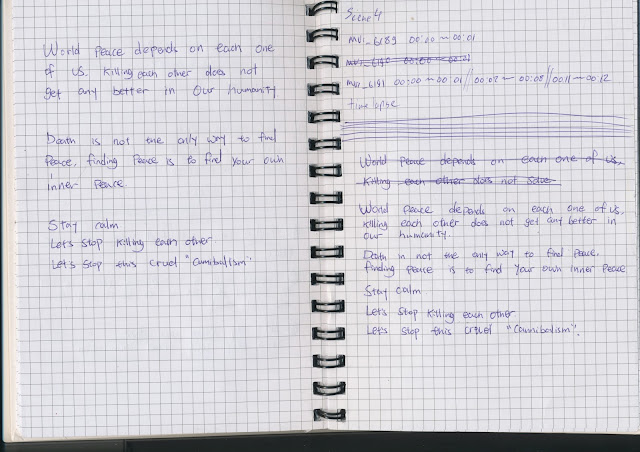 World Peace depends on each one
of us. Killing each other does not
get any better in our humanity
Death is not the only way to find
Peace, finding Peace is to find your own
inner Peace
Stay calm
Let's stop killing each other
Let's stop this cruel "Cannibalism"
Scene 4
MVI_6189 00:00 – 00:01
MVI_6190 00:00 – 00:01
MVI_6191 00:00 – 00:01 // 00:07 – 00:08 // 00:11 – 00:12
time lapse
World Peace depends on each one of us,
Killing each other does not solve
World Peace depends on each one of us,
killing each other does not get any better in
our humanity.
Death in not the only way to find Peace,
finding peace is to find your own inner Peace
Stay calm
Let's stop killing each other
Let's stop this cruel "Cannibalism".